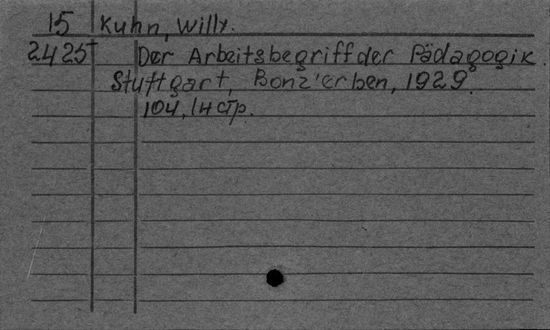 15 Kuhn, Willy.
2425 Der Arbeitsbegriff der Pädagogik.
Stuttgart, Bonz'erben, 1929.
104, 1 н стр.